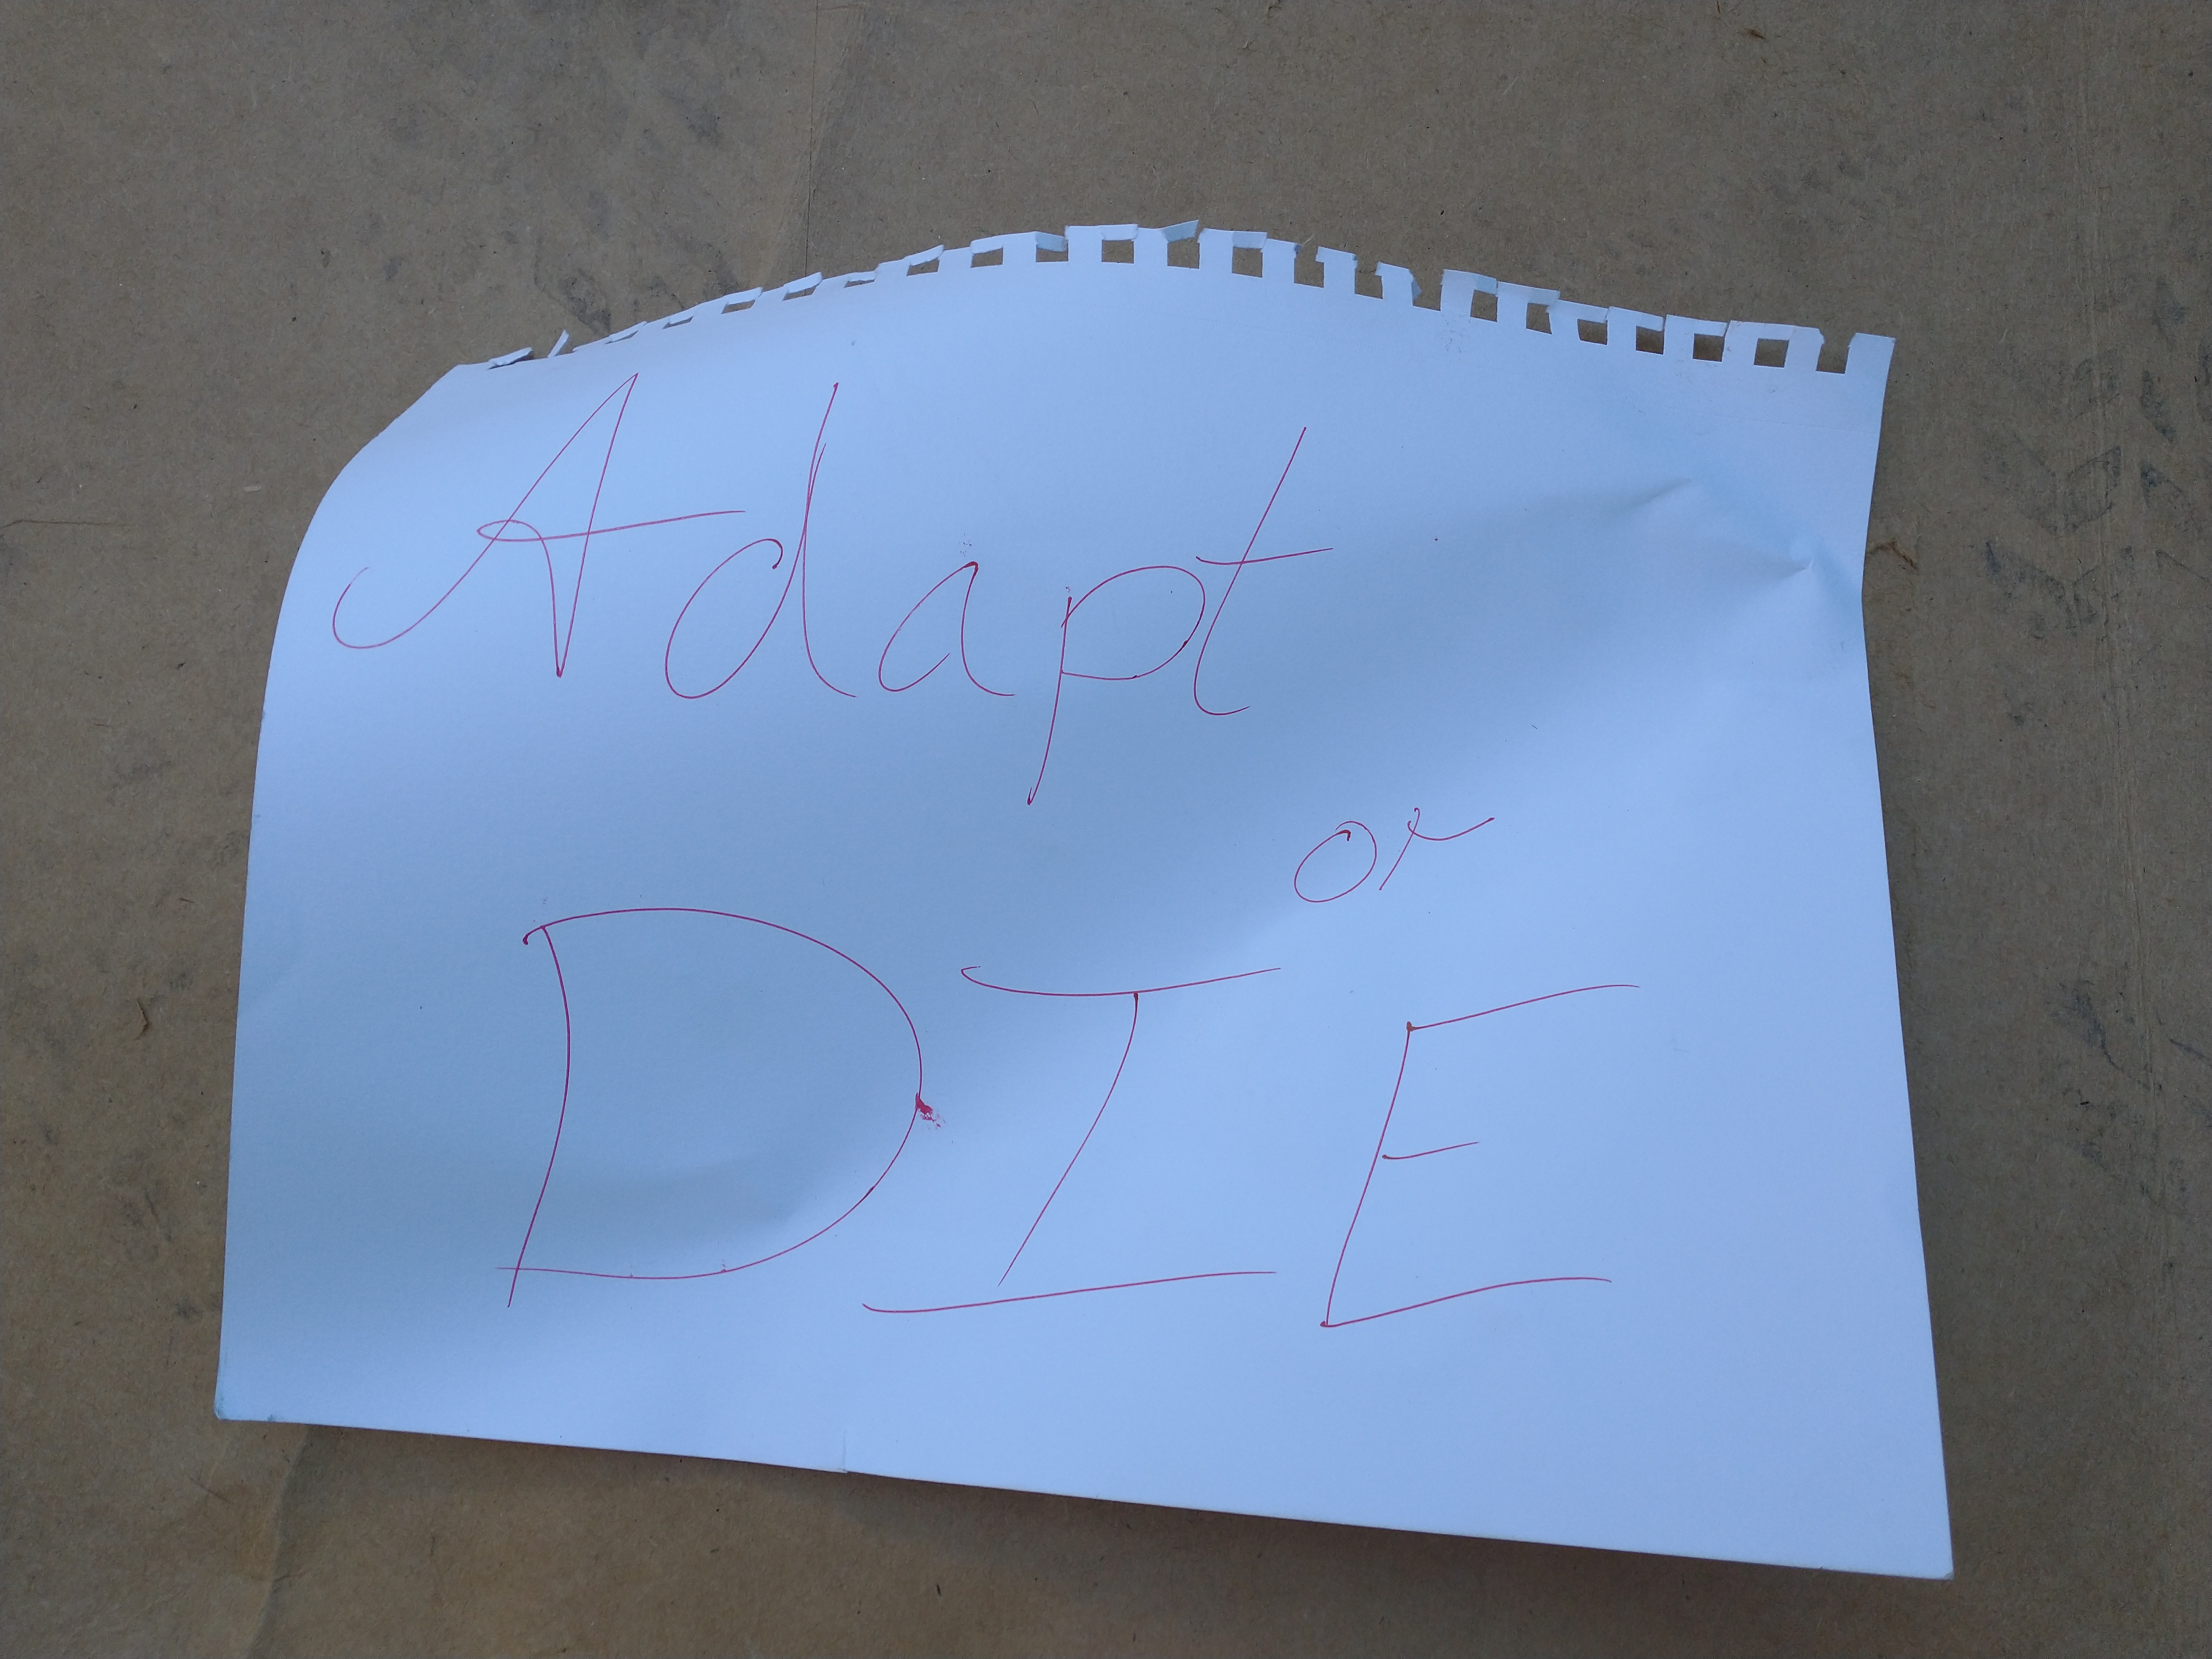 Adapt
or
DIE